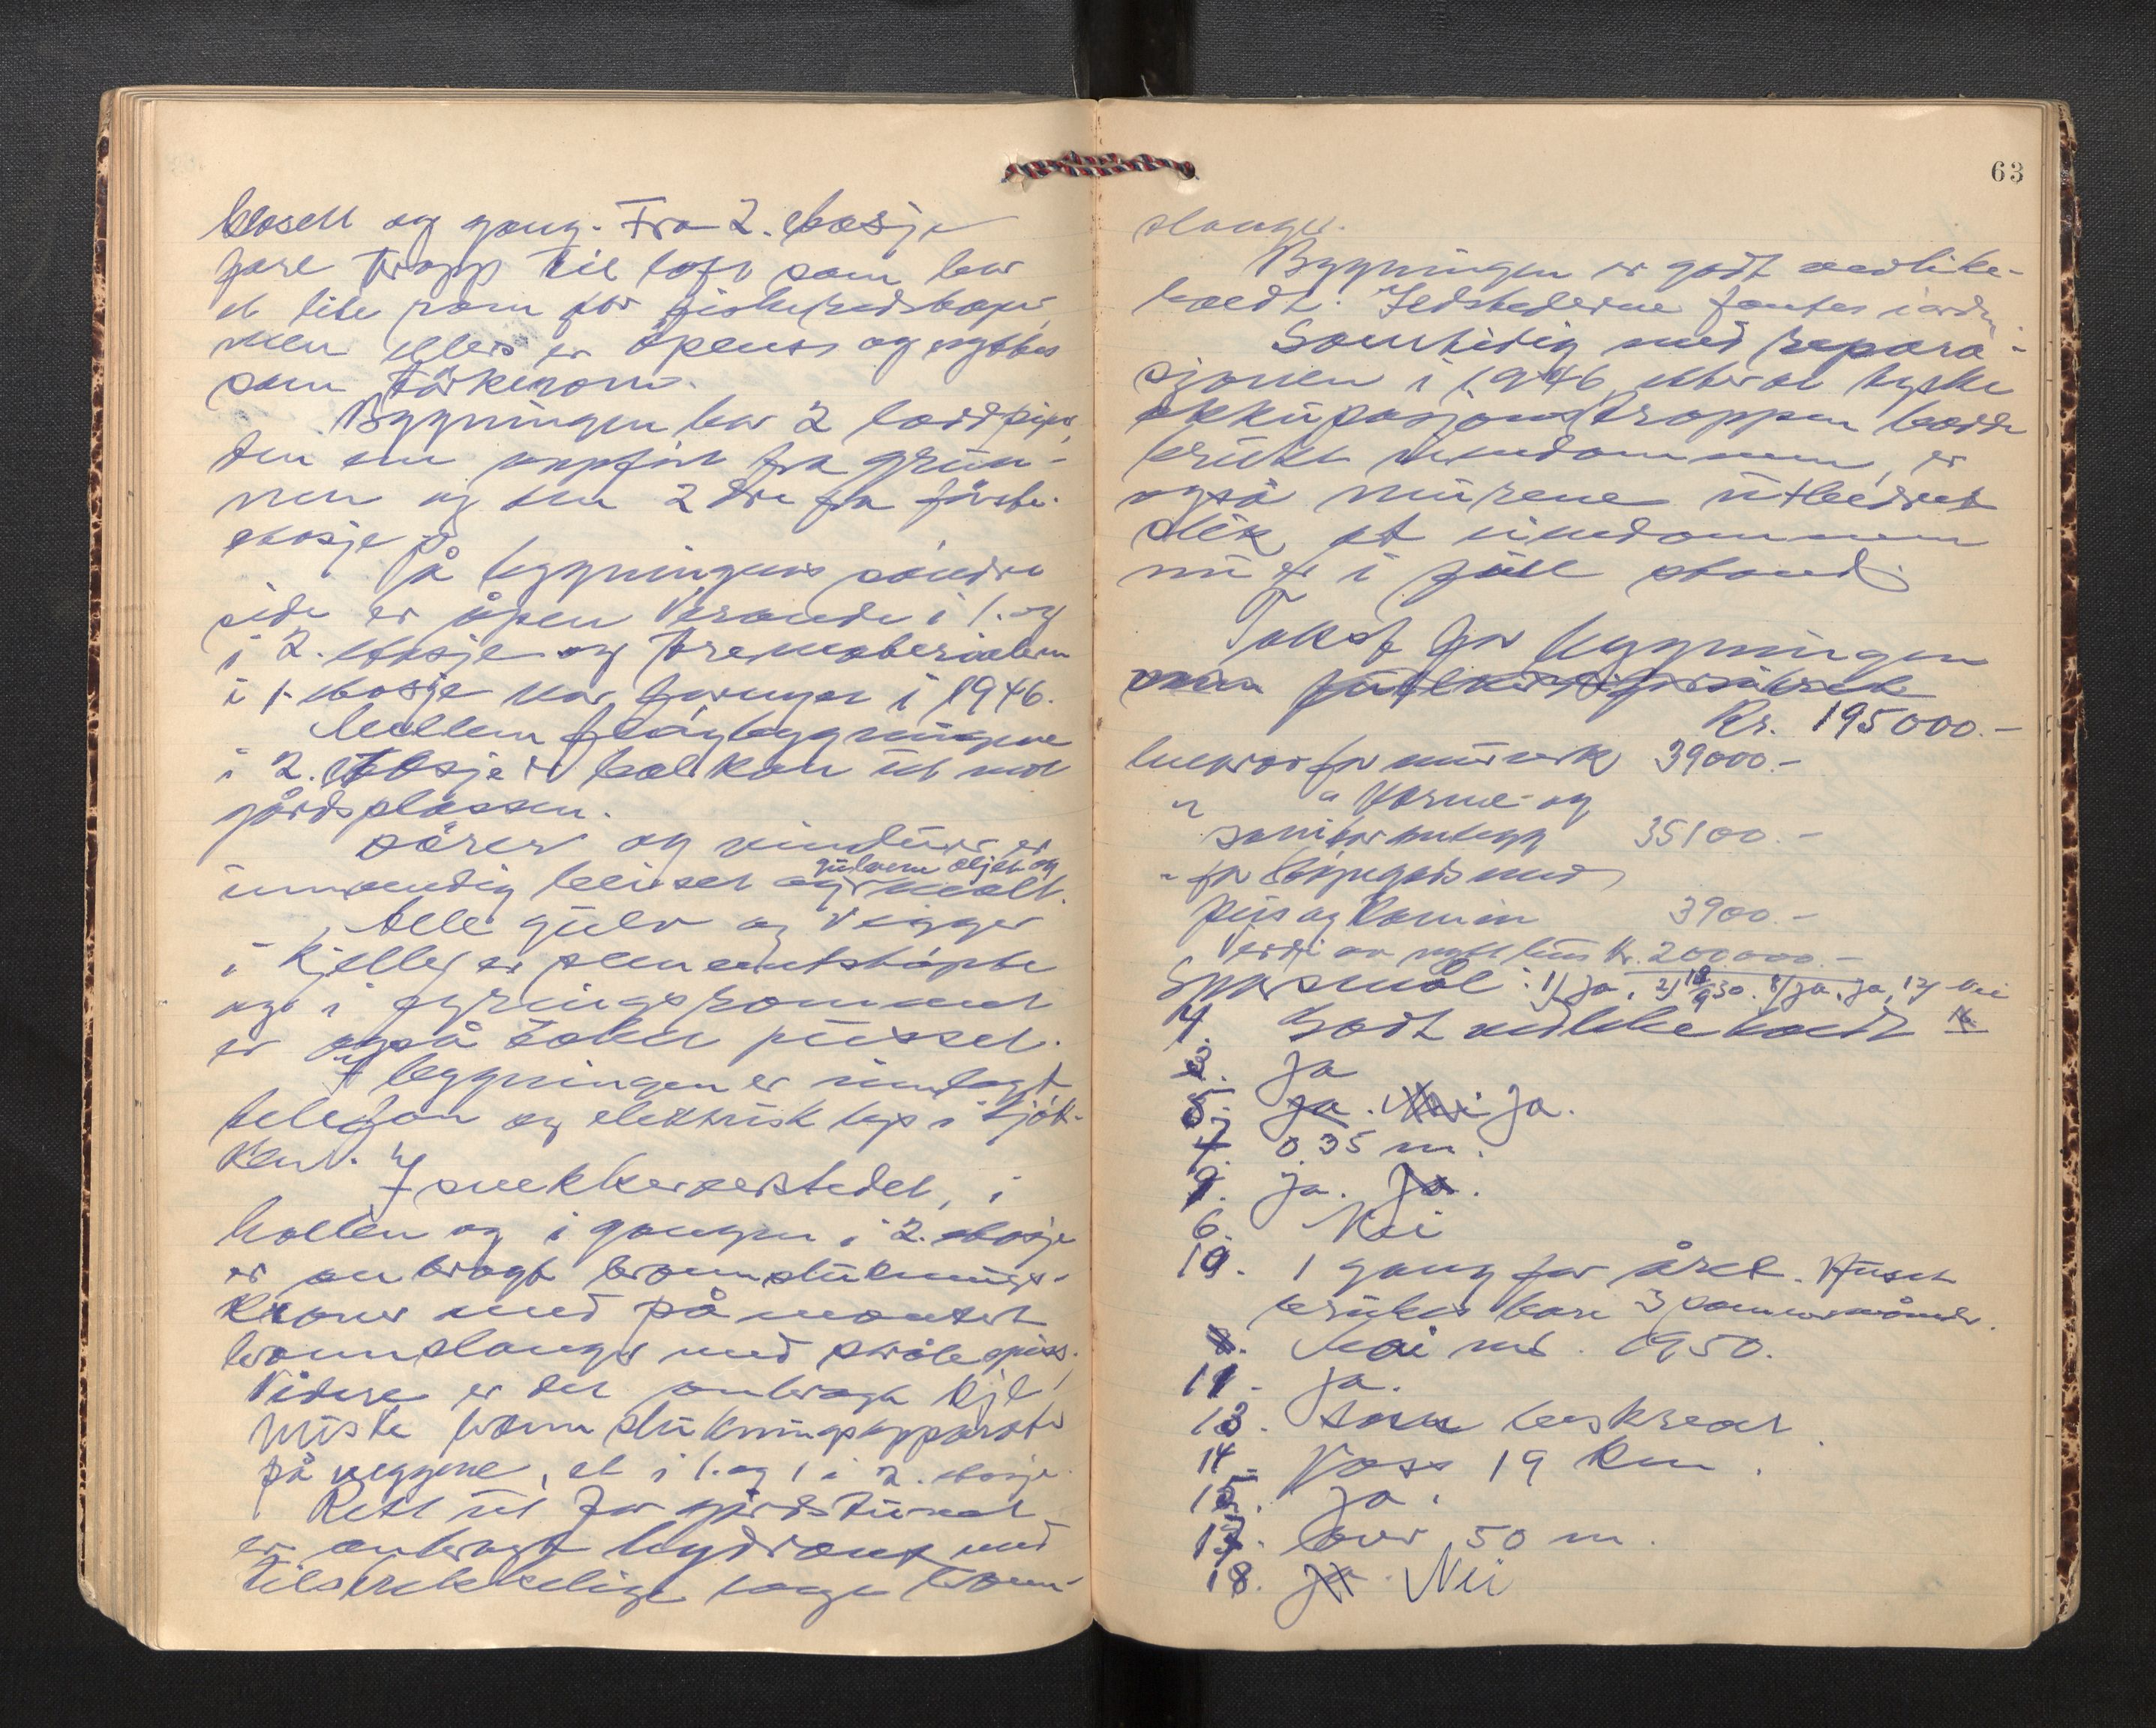 klosett og gang. Fra 2. etasje
fører trapp til loft som har
et lite rom for fiskeredskaper,
men ellers er åpent og nyttes
som tørkerom.
Bygningen har 2 lodd piper,
den ene oppført fra grun-
nen og den 2dre fra første
etasje.
På bygningens søndre
side er åpen veranda i 1. og
i 2. etasje og trematerialene
i 1. etasje var fornyet i 1946.
Mellem fløybygningene
i 2. etasje er balkon ut mot
gårdsplassen.
Dører og vinduer er
gulvene oljet og
innvendig beiset og malt.
Alle gulv og vegger
i kjeller er sementstøpte
og i fyringsrommet
er også taket pusset.
I bygningen er innlagt
telefon og elektrisk lys i kjøk-
ken. I snekkerverkstedet, i
hallen og i gangen i 2. etasje
er anbragt brannsluknings-
kraner med på montert
brannslanger med strålespiss.
Videre er det anbragt
brannslukningsapparater
på veggene, et i 1. og 1 i 2. etasje.
Rett ut for gårdstunet
er anbragt hydrant med
tilstrekkelige lange brann-
63
slanger.
Bygningen er godt vedlike-
holdt. Ildstederne fantes i orden.
Samtidig med repara-
sjonen i 1946, etter at tyske
okkupasjonstroppen hadde
brukt eiendommen, er
også murene utbedret
slik at eiendommen
nu er i full stand.
Takst for bygningen
Kr. 195000.-
hvorav for murverk 39000.-
" " Varme- og
sanitæranlegg 35100.-
" for
peis og kamin 3900.-
Verdi av nytt hus kr. 200000.-
Spørsmål: 1) ja, 2) 18/9 30. 8/ ja, ja, 12/ Nei
4. Godt vedlikeholdt 16
3. Ja
5. Ja. Nei Ja.
7. 0.35 m.
9. ja. Ja.
6. Nei
10. 1 gang for året. Huset
brukes bare 3 sommermåneder.
8. Mai md. 1950.
11. Ja.
13. Som beskrevet.
14. Voss 19 km.
15. Ja.
17. Over 50 m.
18. Ja. Nei